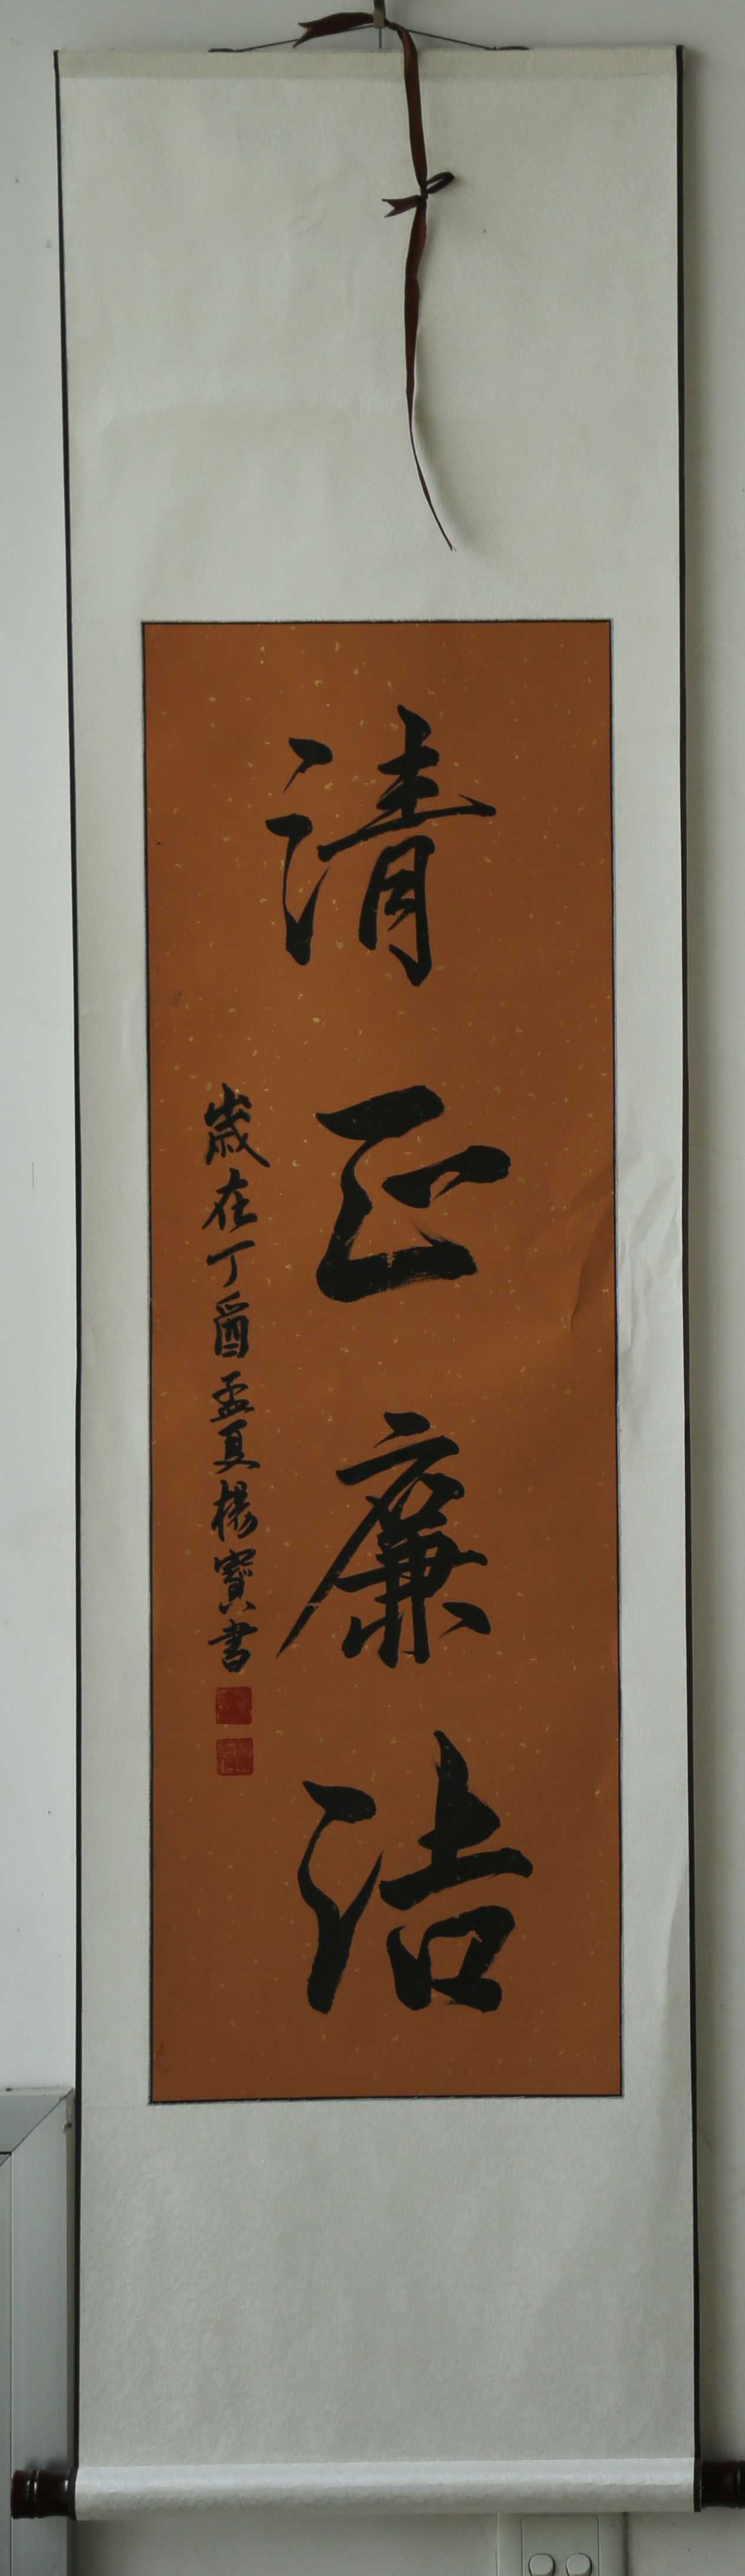 清正廉洁
歲在丁酉孟夏楊寶書